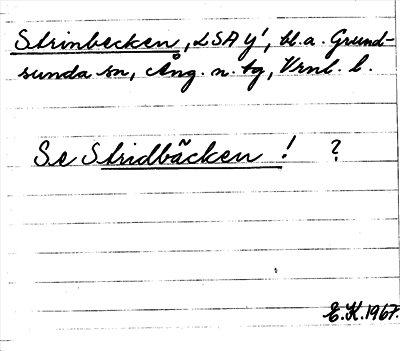 Strinbecken, LSA y', bl.a. Grund-
sunda sn, Ång. n. tg, Vrnl. l.
Se Stridbäcken ! ?
E.K. 1967.